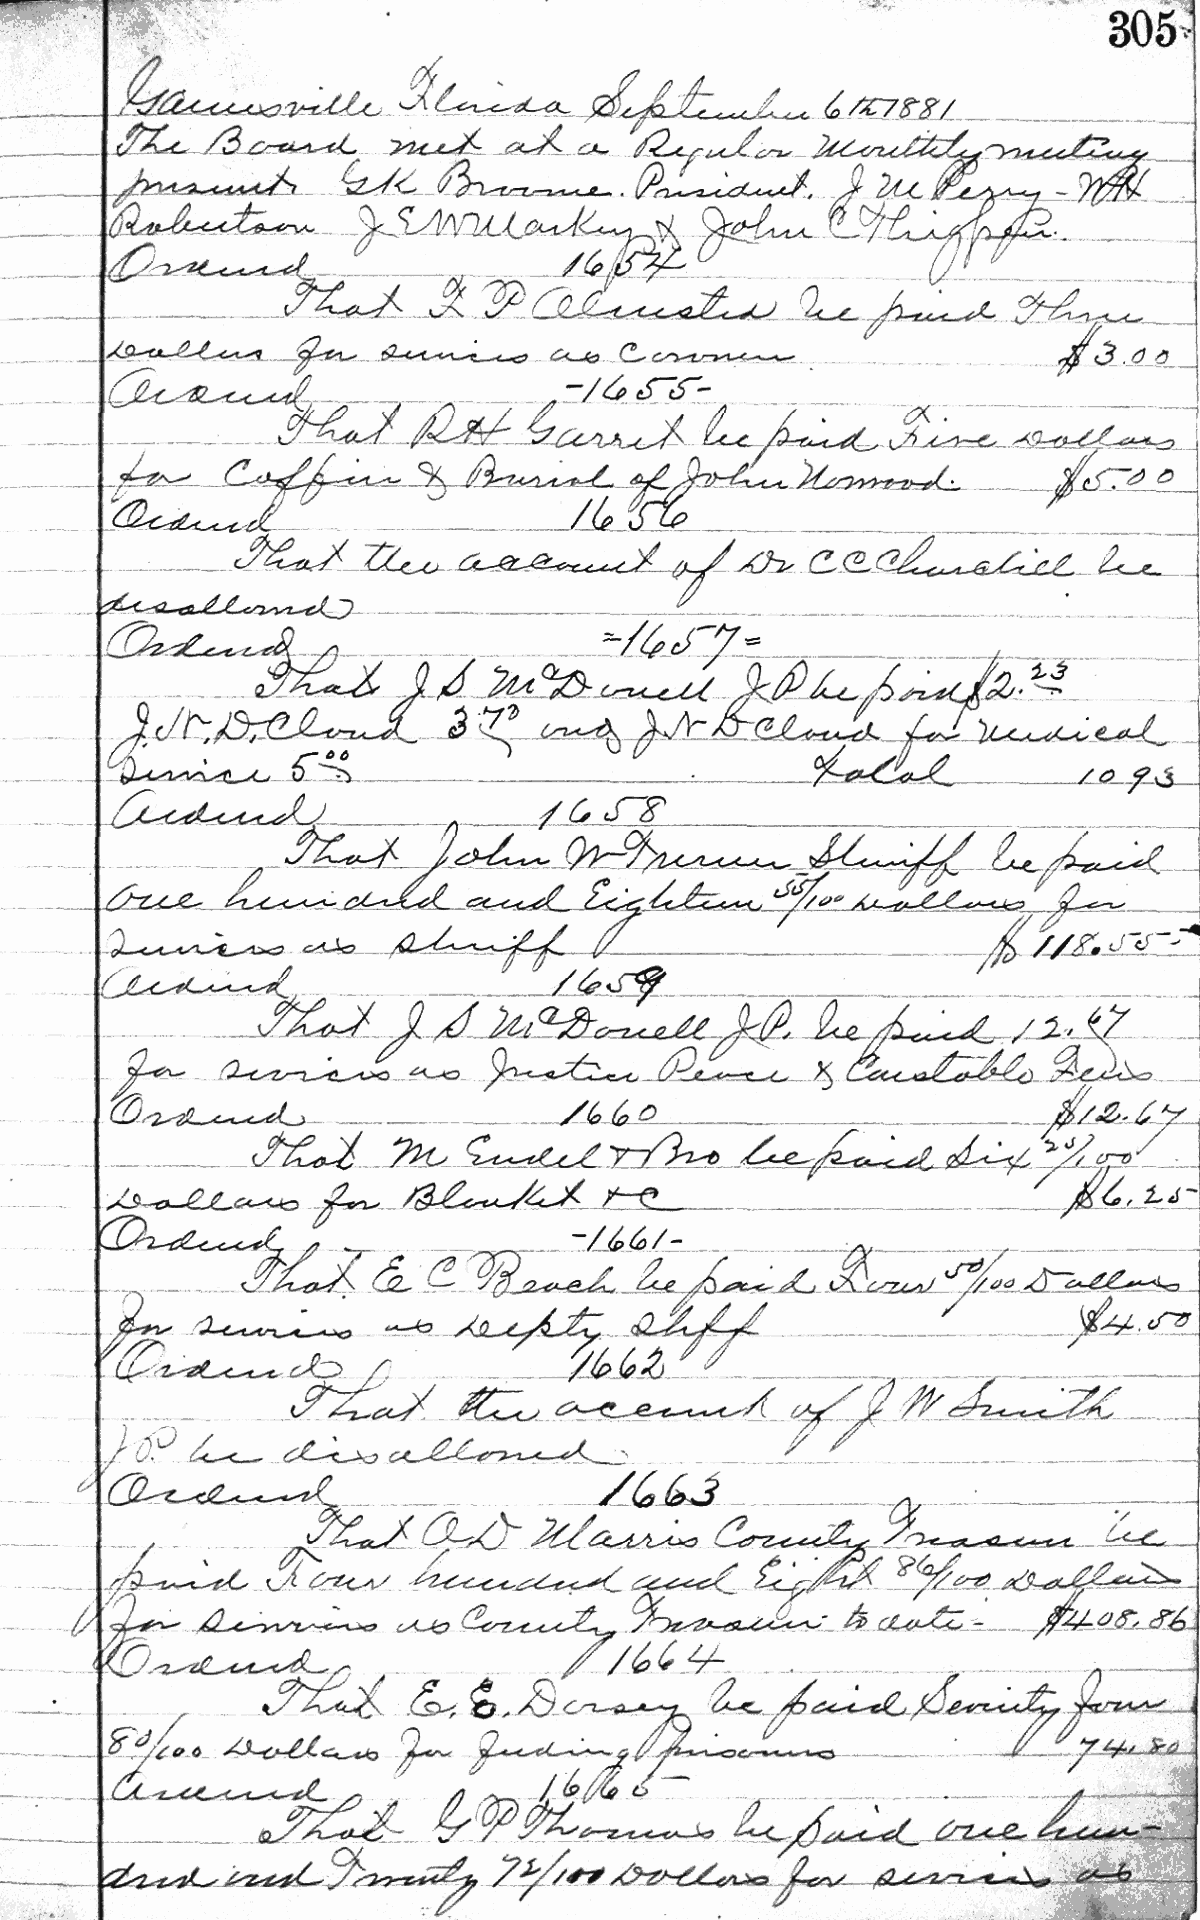 305
Gainesville Florida September 6th 1881
The Board met at a Regular Monthly meeting
present G K Broome. President. J M Perry - W H
Robertson J E W Markey & John C Thigpen.
Ordered 1654
That F P Olmsted be paid Three
Dollars for services as Coroner $3.00
Ordered -1655-
That R H Garret be paid Five Dollars
for Coffin & Burial of John Norwood. $5.00
Ordered 1656
That the account of Dr C C Churchill be
disallowed
Ordered =1657=
That J S McDonell J P be paid $2.23
J. N. D. Cloud 3.70 and J N D Cloud for Medical
Service 5.00 total 10 93
Ordered 1658
That John W Turner Sheriff be paid
one hundred and Eighteen 55/100 Dollars for
services as Sheriff $118.55
Ordered 1659
That J S McDonell J.P. be paid 12.67
for services as Justice Peace & Constable Fees
Ordered 1660 $12.67
That M Endel & Bro be paid Six 25/100
Dollars for Blanket &C $6.25
Ordered -1661-
That E C Beach be paid Four 50/100 Dollars
for services as Depty Shff $4.50
Ordered 1662
That the account of J W Smith
J P. be disallowed
Ordered 1663
That O D Marris County Treasurer be
paid Four hundred and Eight 86/100 Dollars
for services as County Treasurer to date - $408.86
Ordered 1664
That E. E. Dorsey be paid Seventy four
80/100 Dollars for feeding prisoners 74.80
Ordered 1665
That G P Thomas be paid one hun-
dred and Twenty 72/100 Dollars for services as